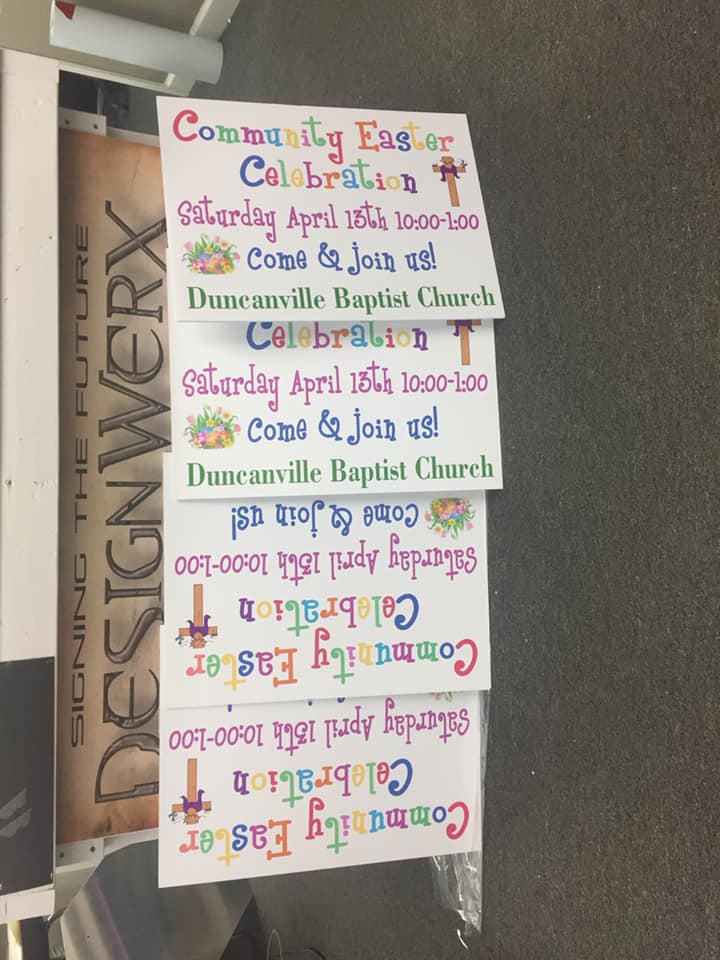 Community Easter
Celebration
Saturday April 13th 10:00-1:00
Come & Join us!
Duncanville Baptist Church
Celebration
Saturday April 13th 10:00-1:00
Come & Join us!
Duncanville Baptist Church
Community Easter
Celebration
Saturday April 13th 10:00-1:00
Come & Join us!
Community Easter
Celebration
Saturday April 13th 10:00-1:00
SIGNING THE FUTURE
DESIGNWERX